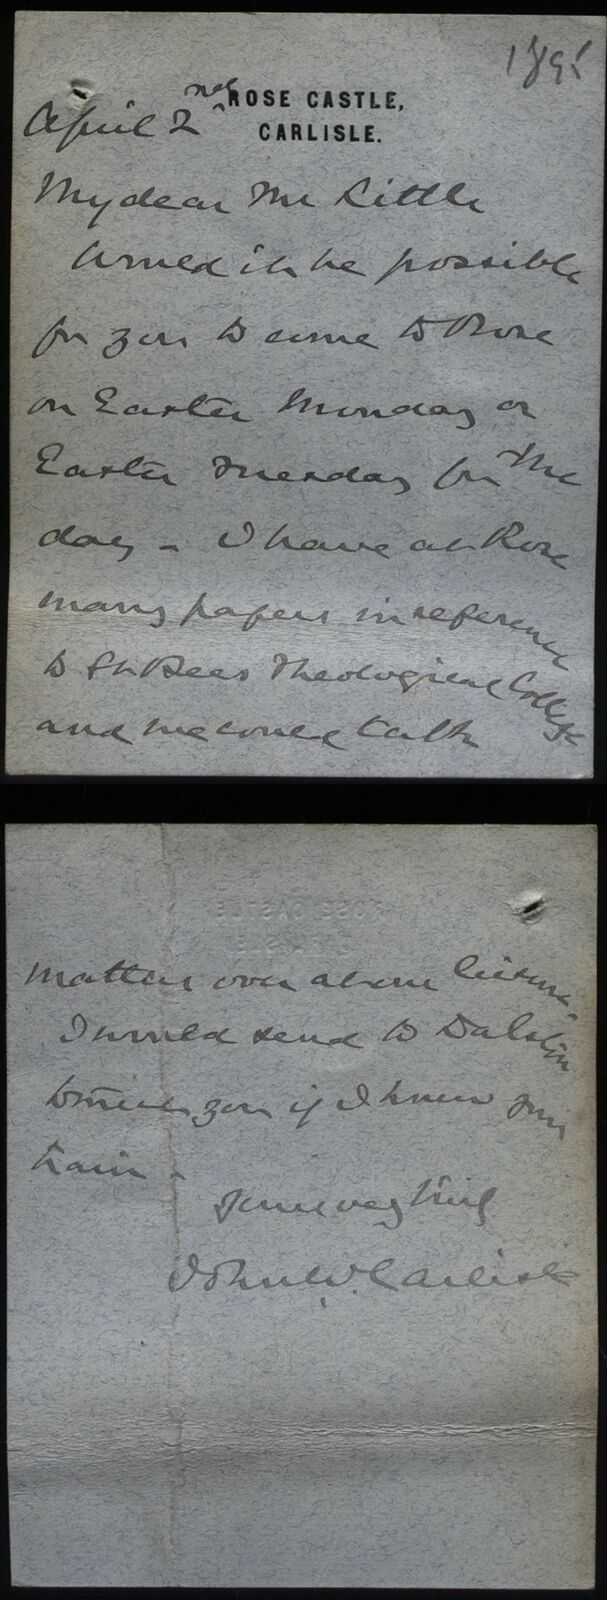 1895
ROSE CASTLE,
CARLISLE.
April 2nd
My dear Mr Little
Would it be possible
for you to come to Rose
on Easter Monday or
Easter Tuesday for the
day - I have at Rose
many papers in reference
to St Bees Theological College
and we could talk
matters over at our leisure.
I would send to Dalston
to meet you if I knew your
train -
Yours very truly
John W. Carlisle